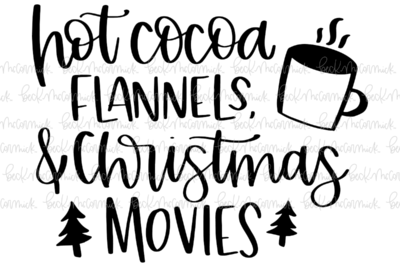 hot cocoa
FLANNELS,
& Christmas
MOVIES